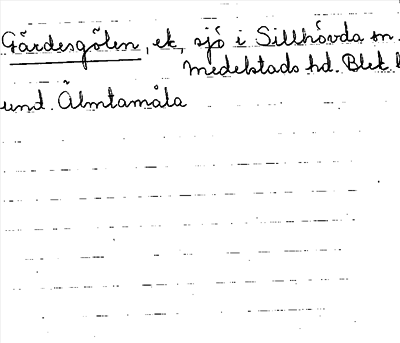 Gärdesgölen, ek, sjö i Sillhövda sn.
Medelstads hd. Blek l
und. Älmtamåla